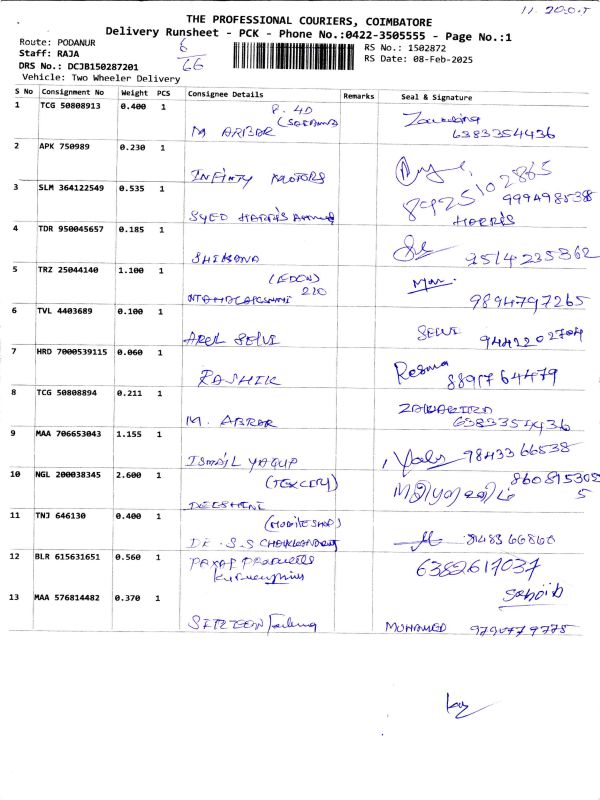 11.20.0.T
THE PROFESSIONAL COURIERS, COIMBATORE
Delivery Runsheet - PCK - Phone No.:0422-3505555 - Page No.:1
Route: PODANUR
Staff: RAJA
DRS No.: DCJB150287201
Vehicle: Two Wheeler Delivery
6
66
RS No.: 1502872
RS Date: 08-Feb-2025
S No Consignment No Weight PCS Consignee Details Remarks Seal & Signature
1 TCG 50808913 0.400 1 M ARBAR 6383354436
2 APK 750989 0.230 1 INFINITY MOTORS 8925102865
3 SLM 364122549 0.535 1 SYED HARRIS 999498538 HARRIS
4 TDR 950045657 0.185 1 SHIBANA 9514235362
5 TRZ 25044140 1.100 1 210 9894797265
6 TVL 4403689 0.100 1 ARUL SELVI SELVI 9442202704
7 HRD 7000539115 0.060 1 RASHIK Resma 8891764479
8 TCG 50808894 0.211 1 M. ABRAR 6383354436
9 MAA 706653043 1.155 1 ISMAIL YAQUP 9843366538
10 NGL 200038345 2.600 1 8608153055
11 TNJ 646130 0.400 1 (MOBILE SHOP) DR. S.S
12 BLR 615631651 0.560 1 6382617037
13 MAA 576814482 0.370 1 Sahoib MOHAMED